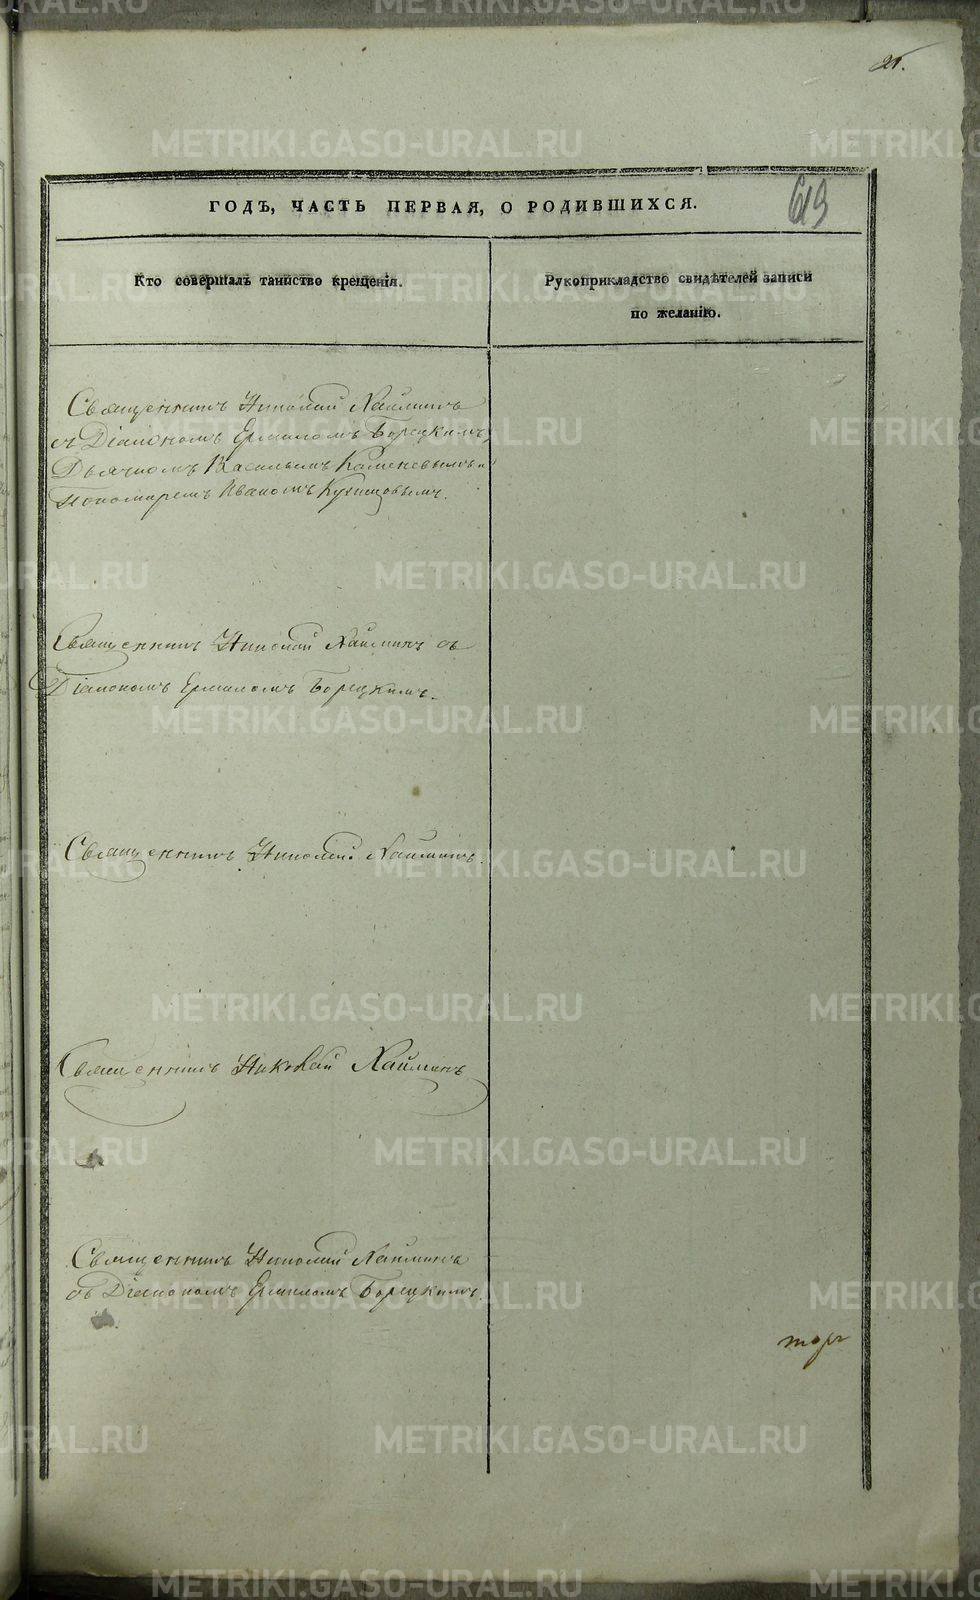 25.
ГОДЪ, ЧАСТЬ ПЕРВАЯ, О РОДИВШИХСЯ.
619
Кто совершалъ таинство крещенія.
Рукоприкладство свидѣтелей записи
по желанію.
Священникъ Николай Хайминъ
съ Діакономъ Ермиломъ Борецкимъ,
Дьячкомъ Васильемъ Каменевымъ и
Пономаремъ Иваномъ Кузнецовымъ.
Священникъ Николай Хайминъ съ
Діакономъ Ермиломъ Борецкимъ.
Священникъ Николай Хайминъ.
Священникъ Николай Хайминъ
Священникъ Николай Хайминъ
съ Діакономъ Ермиломъ Борецкимъ.
METRIKI.GASO-URAL.RU